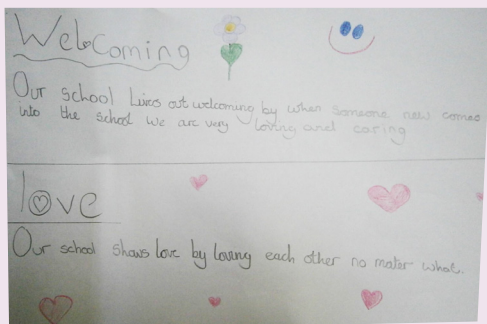 Welcoming
Our school Lives out welcoming by when someone new comes
into the school we are very loving and caring
love
Our school shows love by loving each other no mater what.